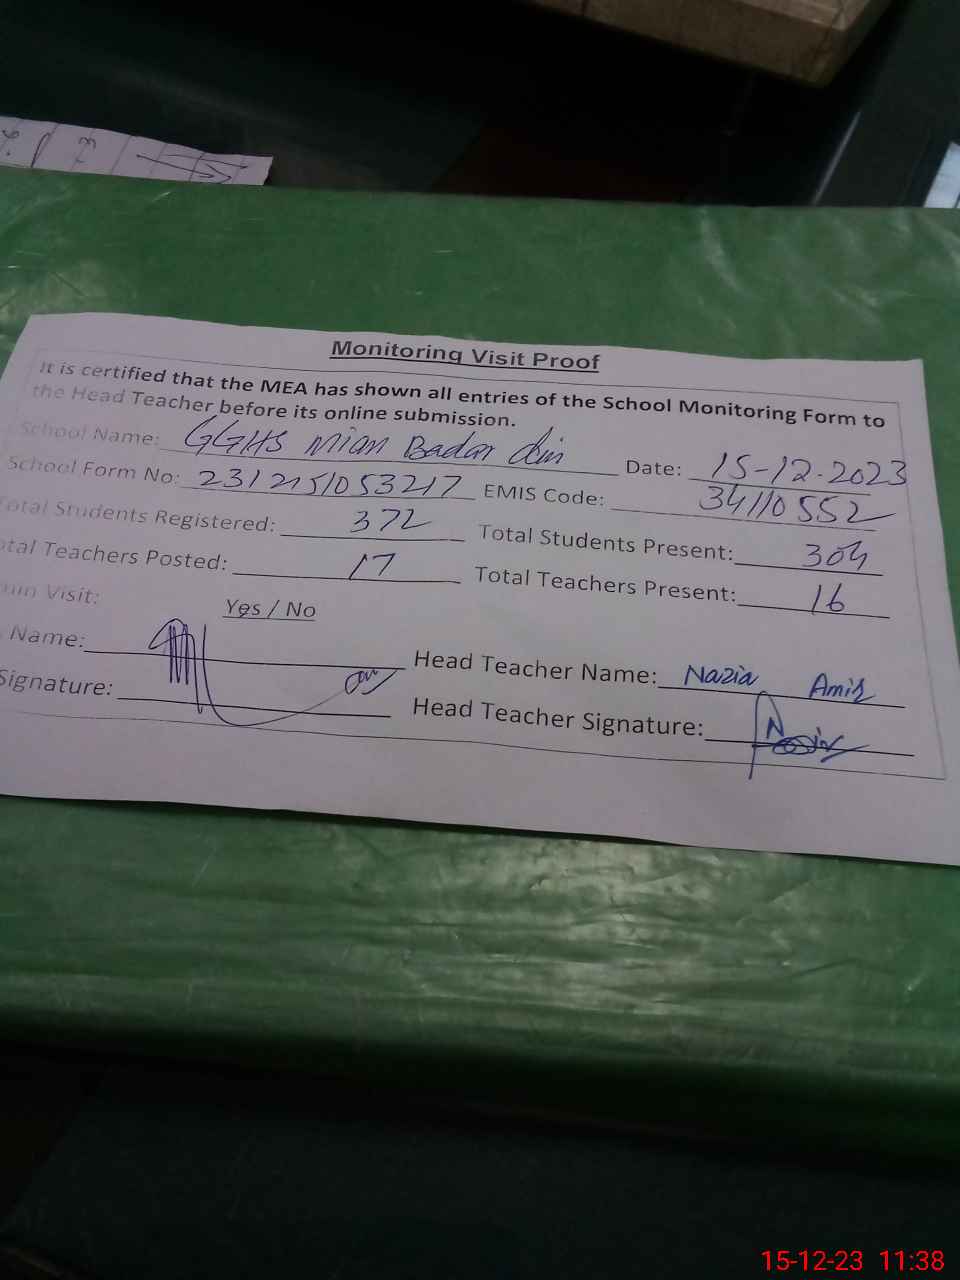 Monitoring Visit Proof
It is certified that the MEA has shown all entries of the School Monitoring Form to
the Head Teacher before its online submission.
School Name: GGHS Mian Badar din Date: 15-12-2023
School Form No: 2312151053217 EMIS Code: 34110552
otal Students Registered: 372 Total Students Present: 304
otal Teachers Posted: 17 Total Teachers Present: 16
min Visit: Yes / No
Name: Head Teacher Name: Nazia Amir
Signature: Head Teacher Signature:
15-12-23 11:38